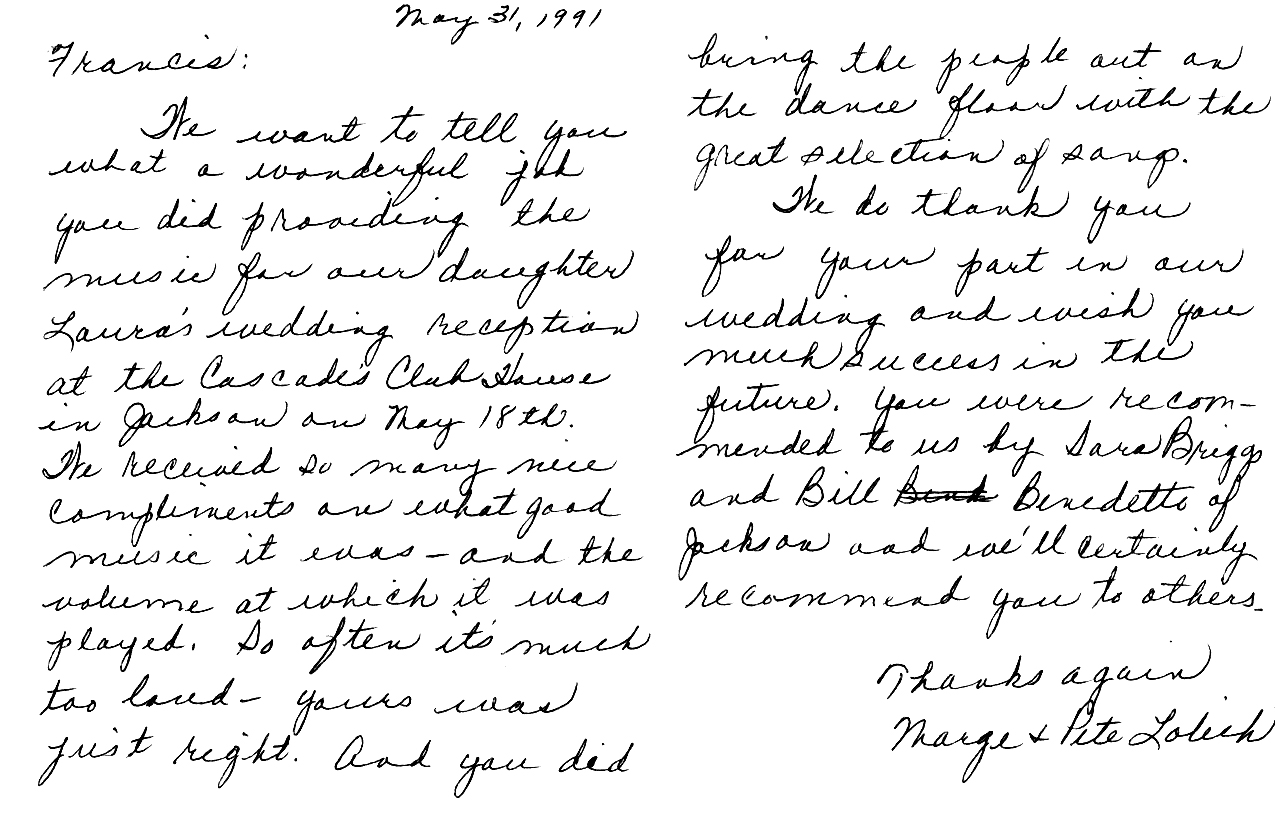 May 31, 1991
Francis:
We want to tell you
what a wonderful job
you did providing the
music for our daughter
Laura's wedding reception
at the Cascades Club House
in Jackson on May 18th.
We received so many nice
compliments on what good
music it was - and the
volume at which it was
played. So often it's much
too loud - yours was
just right. And you did
bring the people out on
the dance floor with the
great selection of song.
We do thank you
for your part in our
wedding and wish you
much success in the
future. You were recom-
mended to us by Sara Briggs
and Bill Benedetto of
Jackson and we'll certainly
recommend you to others.
Thanks again
Marge & Pete